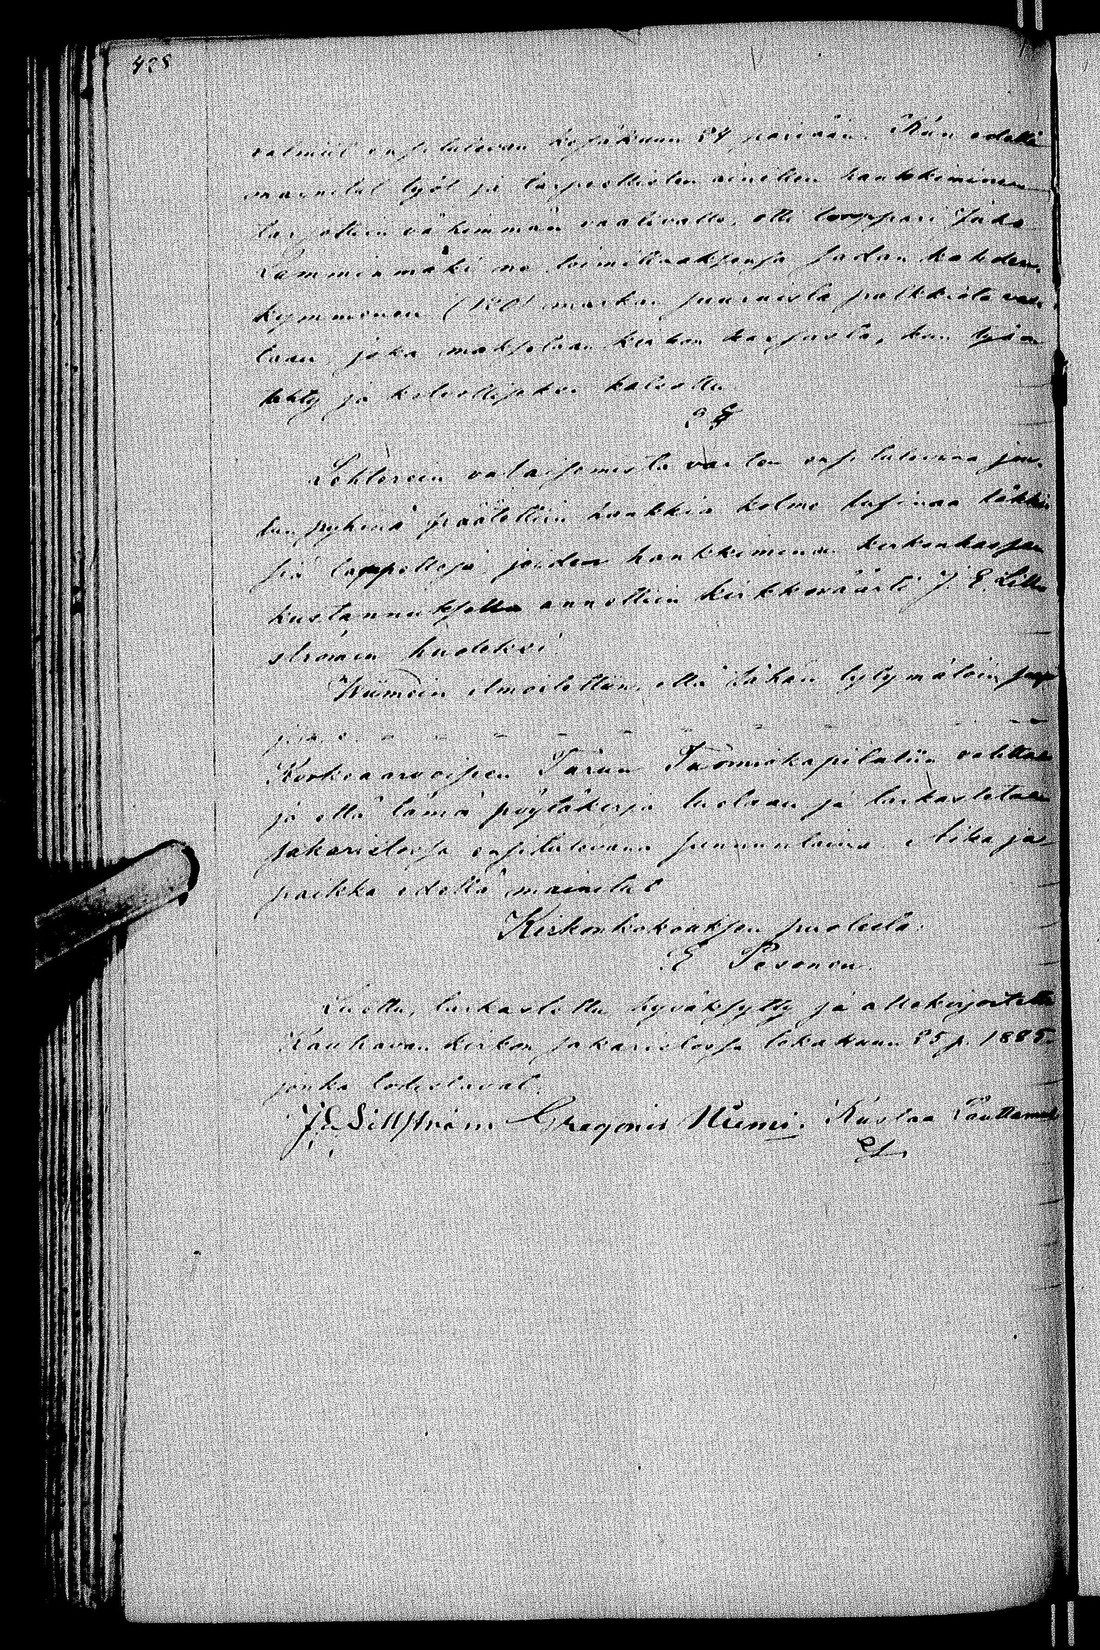 428
valmiit ensitulevan kesäkuun 24 päivään. Kun edellä
mainitut työt ja tarpeellisten aineitten hankkiminen
tarjottiin vähimmän vaativalle, otti torppari Jako
Lamminmäki ne toimittaaksensa sadan kahden-
kymmenen (120) markan suuruista palkkiota vas-
taan joka maksetaan kirkon kassasta, kun työ on
tehty ja kelvolliseksi katsottu
§
Lehterein valaisemista varten ensitulevina jou-
lun pyhinä päätettiin hankkia kolme tusinaa läkki-
siä lamppuja joiden hankkiminen kirkonkassan
kustannuksella annettiin kirkkoväärti J. E. Lill-
strömin huoleksi
Wiimein ilmoitettiin, että tähän tytymätöin saap
Korkeaarvoisen Turun Tuomiokapituliin valittaa
ja että tämä pöytäkirja luetaan ja tarkastetaan
sakaristossa ensitulevana sunnuntaina. Aika ja
paikka edellä mainitut
Kirkonkokouksen puolesta.
E Pesonen.
Luettu, tarkastettu hyväksytty ja allekirjoitettu
Kauhavan kirkon sakaristossa lokakuun 25 p. 1885.
jonka todistavat.
J. E. Lillström Gregorius Niemi. Kustaa Pouttamäki